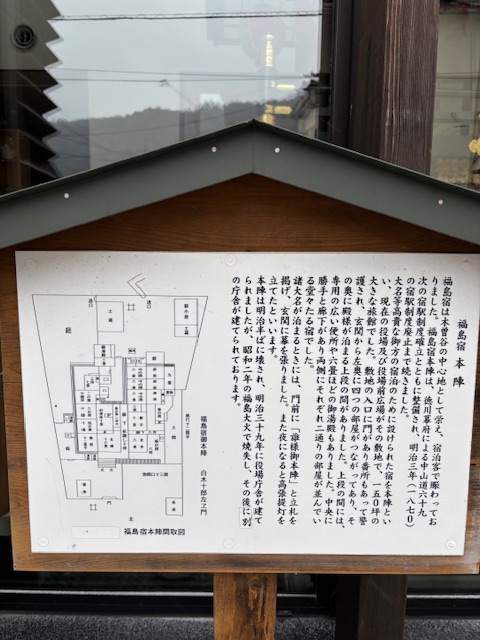 福島宿 本陣
福島宿は木曽谷の中心地として栄え、宿泊客で賑わってお
りました。福島宿本陣は、徳川幕府による中山道六十九
次の宿駅制度確立とともに整備され、明治三年(一八七〇)
の宿駅制度廃止まで続きました。
大名等高貴な御方の宿泊のために設けられた宿を本陣とい
い、現在の役場及び役場前広場がその敷地で、一五〇坪の
大きな旅館でした。敷地の入口に門があり番所もあって警
護され、玄関から左奥に四つの部屋がつながってあり、そ
の奥に殿様が泊まる上段の間がありました。上段の間には、
専用の広い便所や六畳ほどの御湯殿もありました。中央に
勝手と廊下があり両側にそれぞれ二通りの部屋が並んでい
る堂々たる宿でした。
諸大名が泊まるときには、門前に「誰様御本陣」と立札を
掲げ、玄関に幕を張りました。また夜になると高張提灯を
立てたといいます。
本陣は明治半ばに壊され、明治三十九年に役場庁舎が建て
られましたが、昭和二年の福島大火で焼失し、その後に別
の庁舎が建てられております。
福島宿御本陣 白木十郎左ヱ門
福島宿本陣間取図
庭
土蔵
庭
門
北